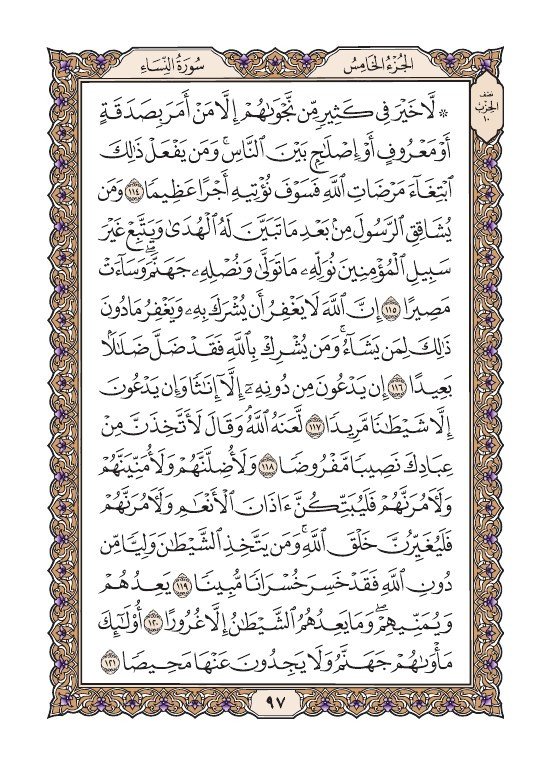 الجُزْءُ الخَامِسُ
سُورَةُ النِّسَاءِ
نصف
الحِزْب
١٠
۞ لَّا خَيْرَ فِي كَثِيرٍ مِّن نَّجْوَىٰهُمْ إِلَّا مَنْ أَمَرَ بِصَدَقَةٍ
أَوْ مَعْرُوفٍ أَوْ إِصْلَٰحٍۭ بَيْنَ ٱلنَّاسِۚ وَمَن يَفْعَلْ ذَٰلِكَ
ٱبْتِغَآءَ مَرْضَاتِ ٱللَّهِ فَسَوْفَ نُؤْتِيهِ أَجْرًا عَظِيمًا ١١٤ وَمَن
يُشَاقِقِ ٱلرَّسُولَ مِنۢ بَعْدِ مَا تَبَيَّنَ لَهُ ٱلْهُدَىٰ وَيَتَّبِعْ غَيْرَ
سَبِيلِ ٱلْمُؤْمِنِينَ نُوَلِّهِۦ مَا تَوَلَّىٰ وَنُصْلِهِۦ جَهَنَّمَۖ وَسَآءَتْ
مَصِيرًا ١١٥ إِنَّ ٱللَّهَ لَا يَغْفِرُ أَن يُشْرَكَ بِهِۦ وَيَغْفِرُ مَا دُونَ
ذَٰلِكَ لِمَن يَشَآءُۚ وَمَن يُشْرِكْ بِٱللَّهِ فَقَدْ ضَلَّ ضَلَٰلًۢا
بَعِيدًا ١١٦ إِن يَدْعُونَ مِن دُونِهِۦٓ إِلَّآ إِنَٰثًا وَإِن يَدْعُونَ
إِلَّا شَيْطَٰنًا مَّرِيدًا ١١٧ لَّعَنَهُ ٱللَّهُۘ وَقَالَ لَأَتَّخِذَنَّ مِنْ
عِبَادِكَ نَصِيبًا مَّفْرُوضًا ١١٨ وَلَأُضِلَّنَّهُمْ وَلَأُمَنِّيَنَّهُمْ
وَلَءَامُرَنَّهُمْ فَلَيُبَتِّكُنَّ ءَاذَانَ ٱلْأَنْعَٰمِ وَلَءَامُرَنَّهُمْ
فَلَيُغَيِّرُنَّ خَلْقَ ٱللَّهِۚ وَمَن يَتَّخِذِ ٱلشَّيْطَٰنَ وَلِيًّا مِّن
دُونِ ٱللَّهِ فَقَدْ خَسِرَ خُسْرَانًا مُّبِينًا ١١٩ يَعِدُهُمْ
وَيُمَنِّيهِمْۖ وَمَا يَعِدُهُمُ ٱلشَّيْطَٰنُ إِلَّا غُرُورًا ١٢٠ أُو۟لَٰٓئِكَ
مَأْوَىٰهُمْ جَهَنَّمُ وَلَا يَجِدُونَ عَنْهَا مَحِيصًا ١٢١
٩٧